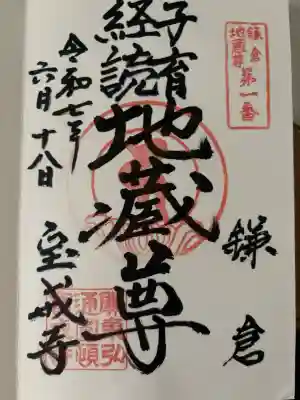 鎌倉
地蔵尊
第一番
鎌倉
子育
経読
地蔵尊
令和七年
六月十八日
宝戒寺